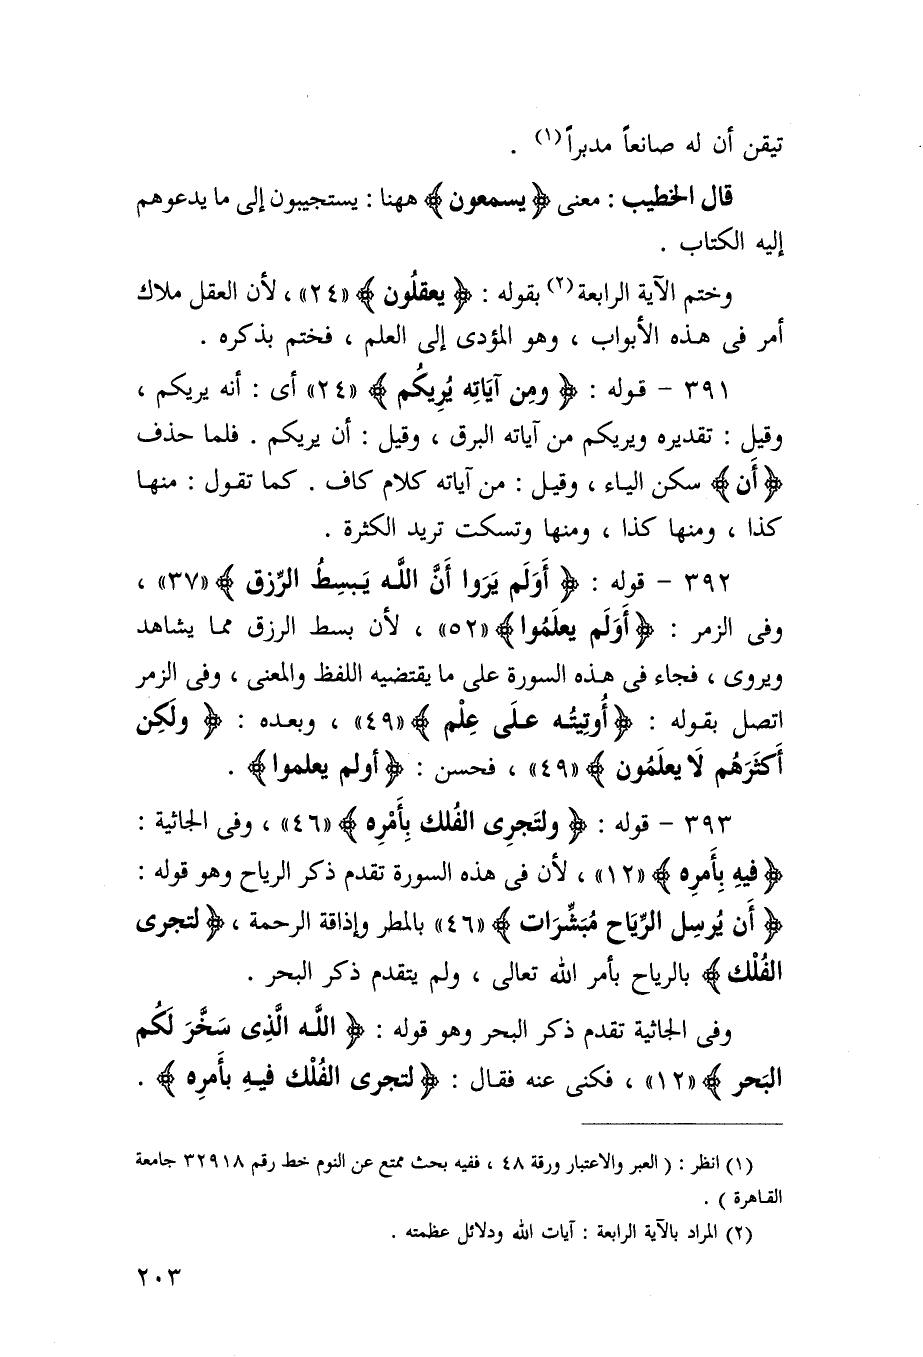 تيقن أن له صانعاً مدبراً(١) .
قال الخطيب : معنى ﴿ يسمعون ﴾ ههنا : يستجيبون إلى ما يدعوهم
إليه الكتاب .
وختم الآية الرابعة(٢) بقوله : ﴿ يعقلُون ﴾ «٢٤» ، لأن العقل ملاك
أمر فى هذه الأبواب ، وهو المؤدى إلى العلم ، فختم بذكره .
٣٩١ - قوله : ﴿ ومِن آيَاتِه يُرِيكُم ﴾ «٢٤» أى : أنه يريكم ،
وقيل : تقديره ويريكم من آياته البرق ، وقيل : أن يريكم . فلما حذف
﴿ أَن ﴾ سكن الياء ، وقيل : من آياته كلام كاف . كما تقول : منها
كذا ، ومنها كذا ، ومنها وتسكت تريد الكثرة .
٣٩٢ - قوله : ﴿ أَوَلَم يَرَوا أَنَّ اللَّه يَبسِطُ الرِّزق ﴾ «٣٧» ،
وفى الزمر : ﴿ أَوَلَم يعلَمُوا ﴾ «٥٢» ، لأن بسط الرزق مما يشاهد
ويروى ، فجاء فى هذه السورة على ما يقتضيه اللفظ والمعنى ، وفى الزمر
اتصل بقوله : ﴿ أُوتِيتُه علَى عِلْم ﴾ «٤٩» ، وبعده : ﴿ ولَكِن
أكثَرَهُم لَا يعلَمُون ﴾ «٤٩» ، فحسن : ﴿ أولم يعلموا ﴾ .
٣٩٣ - قوله : ﴿ ولتَجرِى الفُلك بِأَمْرِه ﴾ «٤٦» ، وفى الجاثية :
﴿ فيهِ بِأَمرِه ﴾ «١٢» ، لأن فى هذه السورة تقدم ذكر الرياح وهو قوله :
﴿ أَن يُرسِل الرِّيَاح مُبَشِّرَات ﴾ «٤٦» بالمطر وإذاقة الرحمة ، ﴿ لتجرى
الفُلْك ﴾ بالرياح بأمر الله تعالى ، ولم يتقدم ذكر البحر .
وفى الجاثية تقدم ذكر البحر وهو قوله : ﴿ اللَّه الَّذِى سَخَّرَ لَكُم
البَحر ﴾ «١٢» ، فكنى عنه فقال : ﴿ لتجرى الفُلْك فيهِ بأَمرِه ﴾ .
(١) انظر : ( العبر والاعتبار ورقة ٤٨ ، ففيه بحث ممتع عن النوم خط رقم ٣٢٩١٨ جامعة
القاهرة ) .
(٢) المراد بالآية الرابعة : آيات الله ودلائل عظمته .
٢٠٣